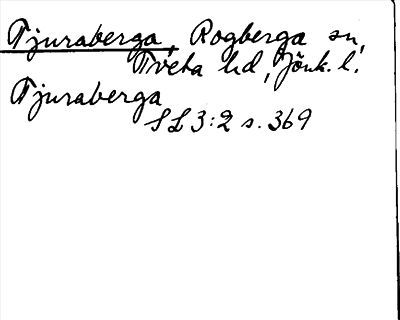 Tjuraberga, Rogberga sn,
Tveta hd, Jönk. l.
Tjuraberga
SL 3:2 s. 369